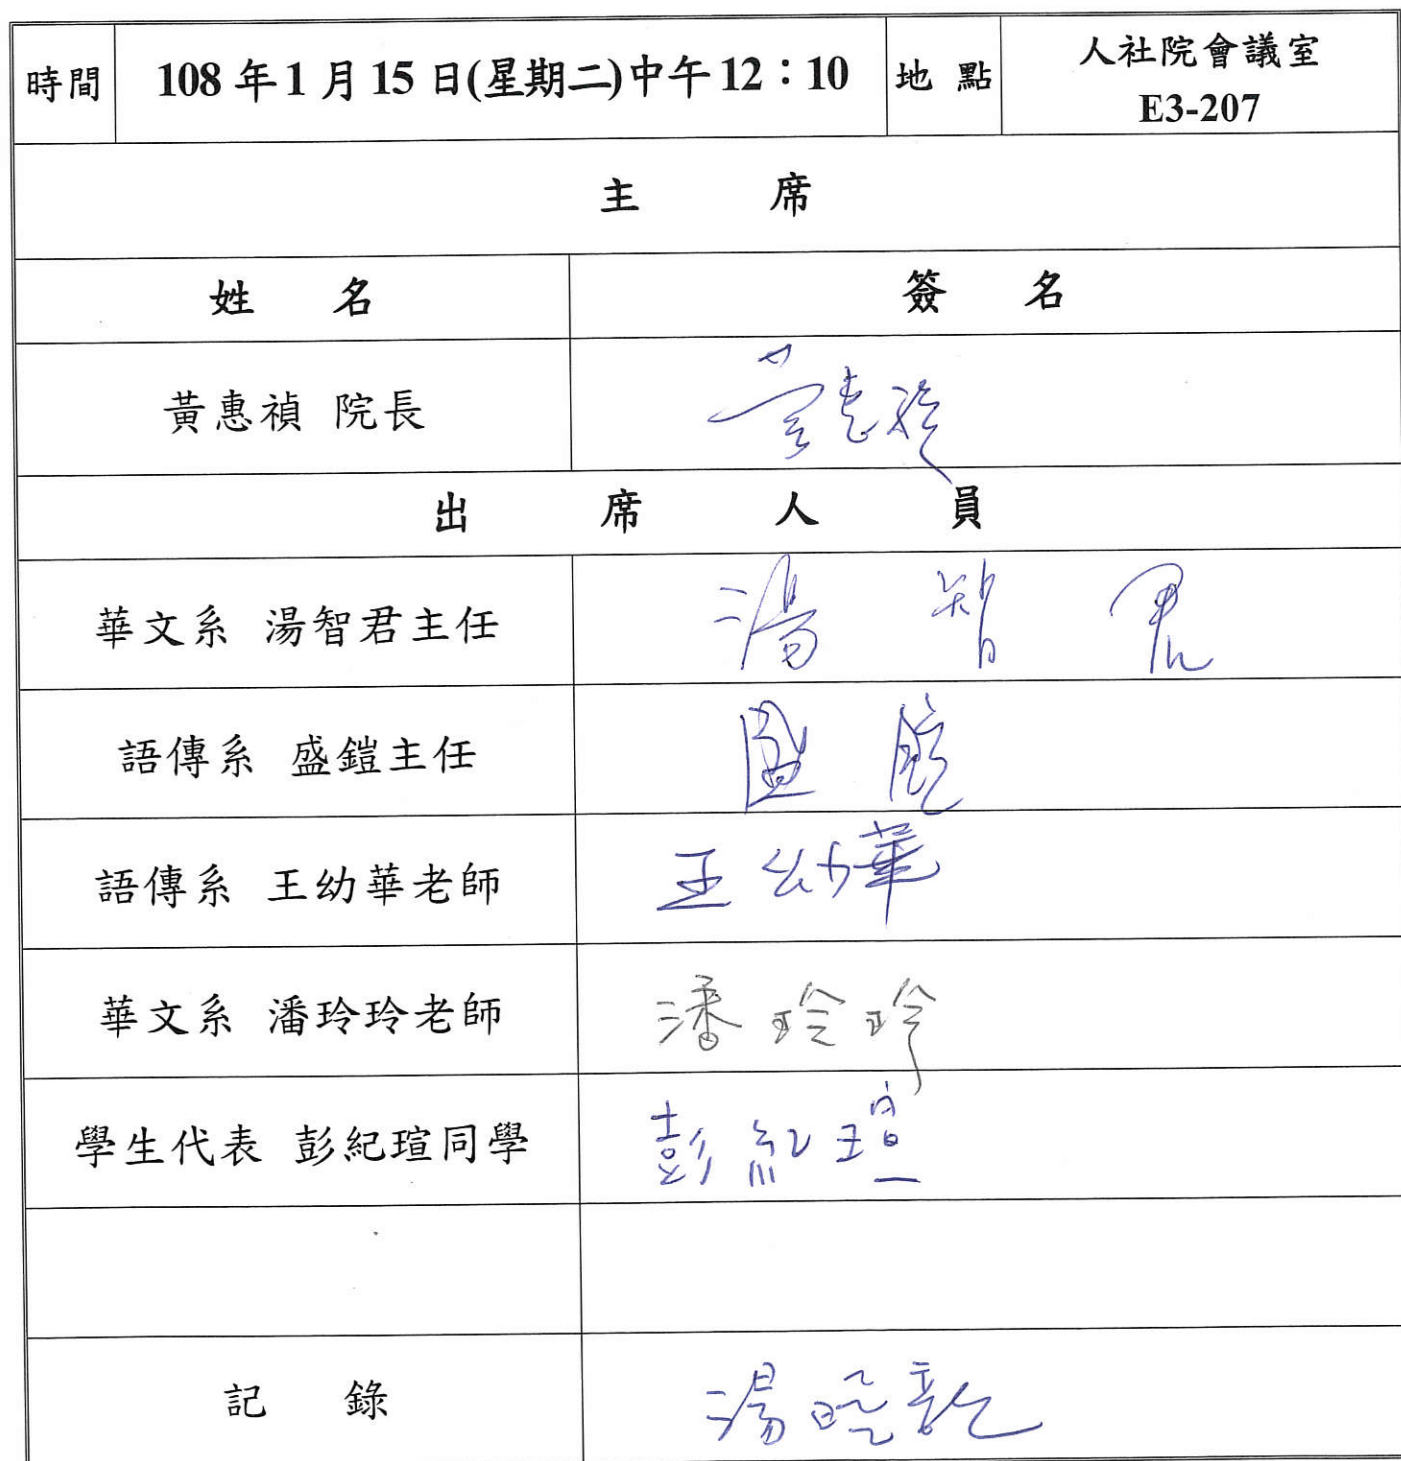 時間 108年1月15日(星期二)中午12：10 地點 人社院會議室
E3-207
主席
姓名 簽名
黃惠禎 院長 黃惠禎
出席人員
華文系 湯智君主任 湯智君
語傳系 盛鎧主任 盛鎧
語傳系 王幼華老師 王幼華
華文系 潘玲玲老師 潘玲玲
學生代表 彭紀瑄同學 彭紀瑄
記錄 湯